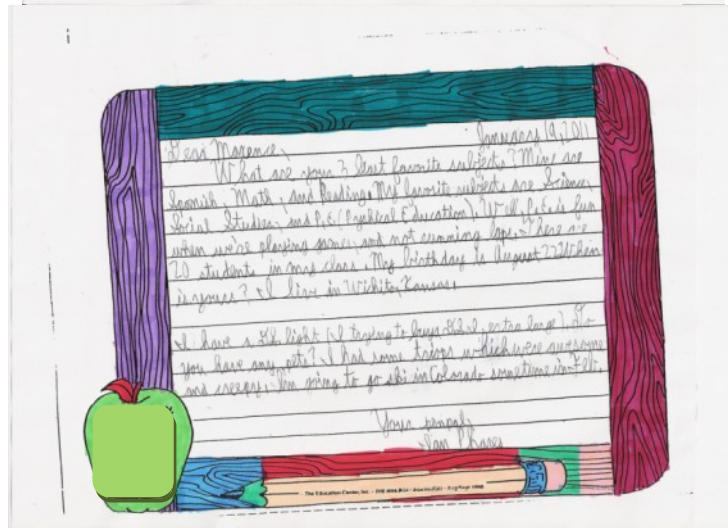 January 19, 2011
Dear Maxence,
What are your 3 least favorite subjects? Mine are
Spanish, Math, and Reading. My favorite subjects are Science,
Social Studies, and P.E. (Pyshical Education). Well, P.E. is fun
when we're playing games, and not running laps. There are
20 students in my class. My birthday is August 22. When
is yours? I live in Wichita, Kansas.
I have a light (I trying to buy extra large). Do
you have any pets? I had some triops which were awesome
and creepy. I'm going to go ski in Colorado sometime in Feb.
Your penpal,
Ian
The Education Center, Inc.